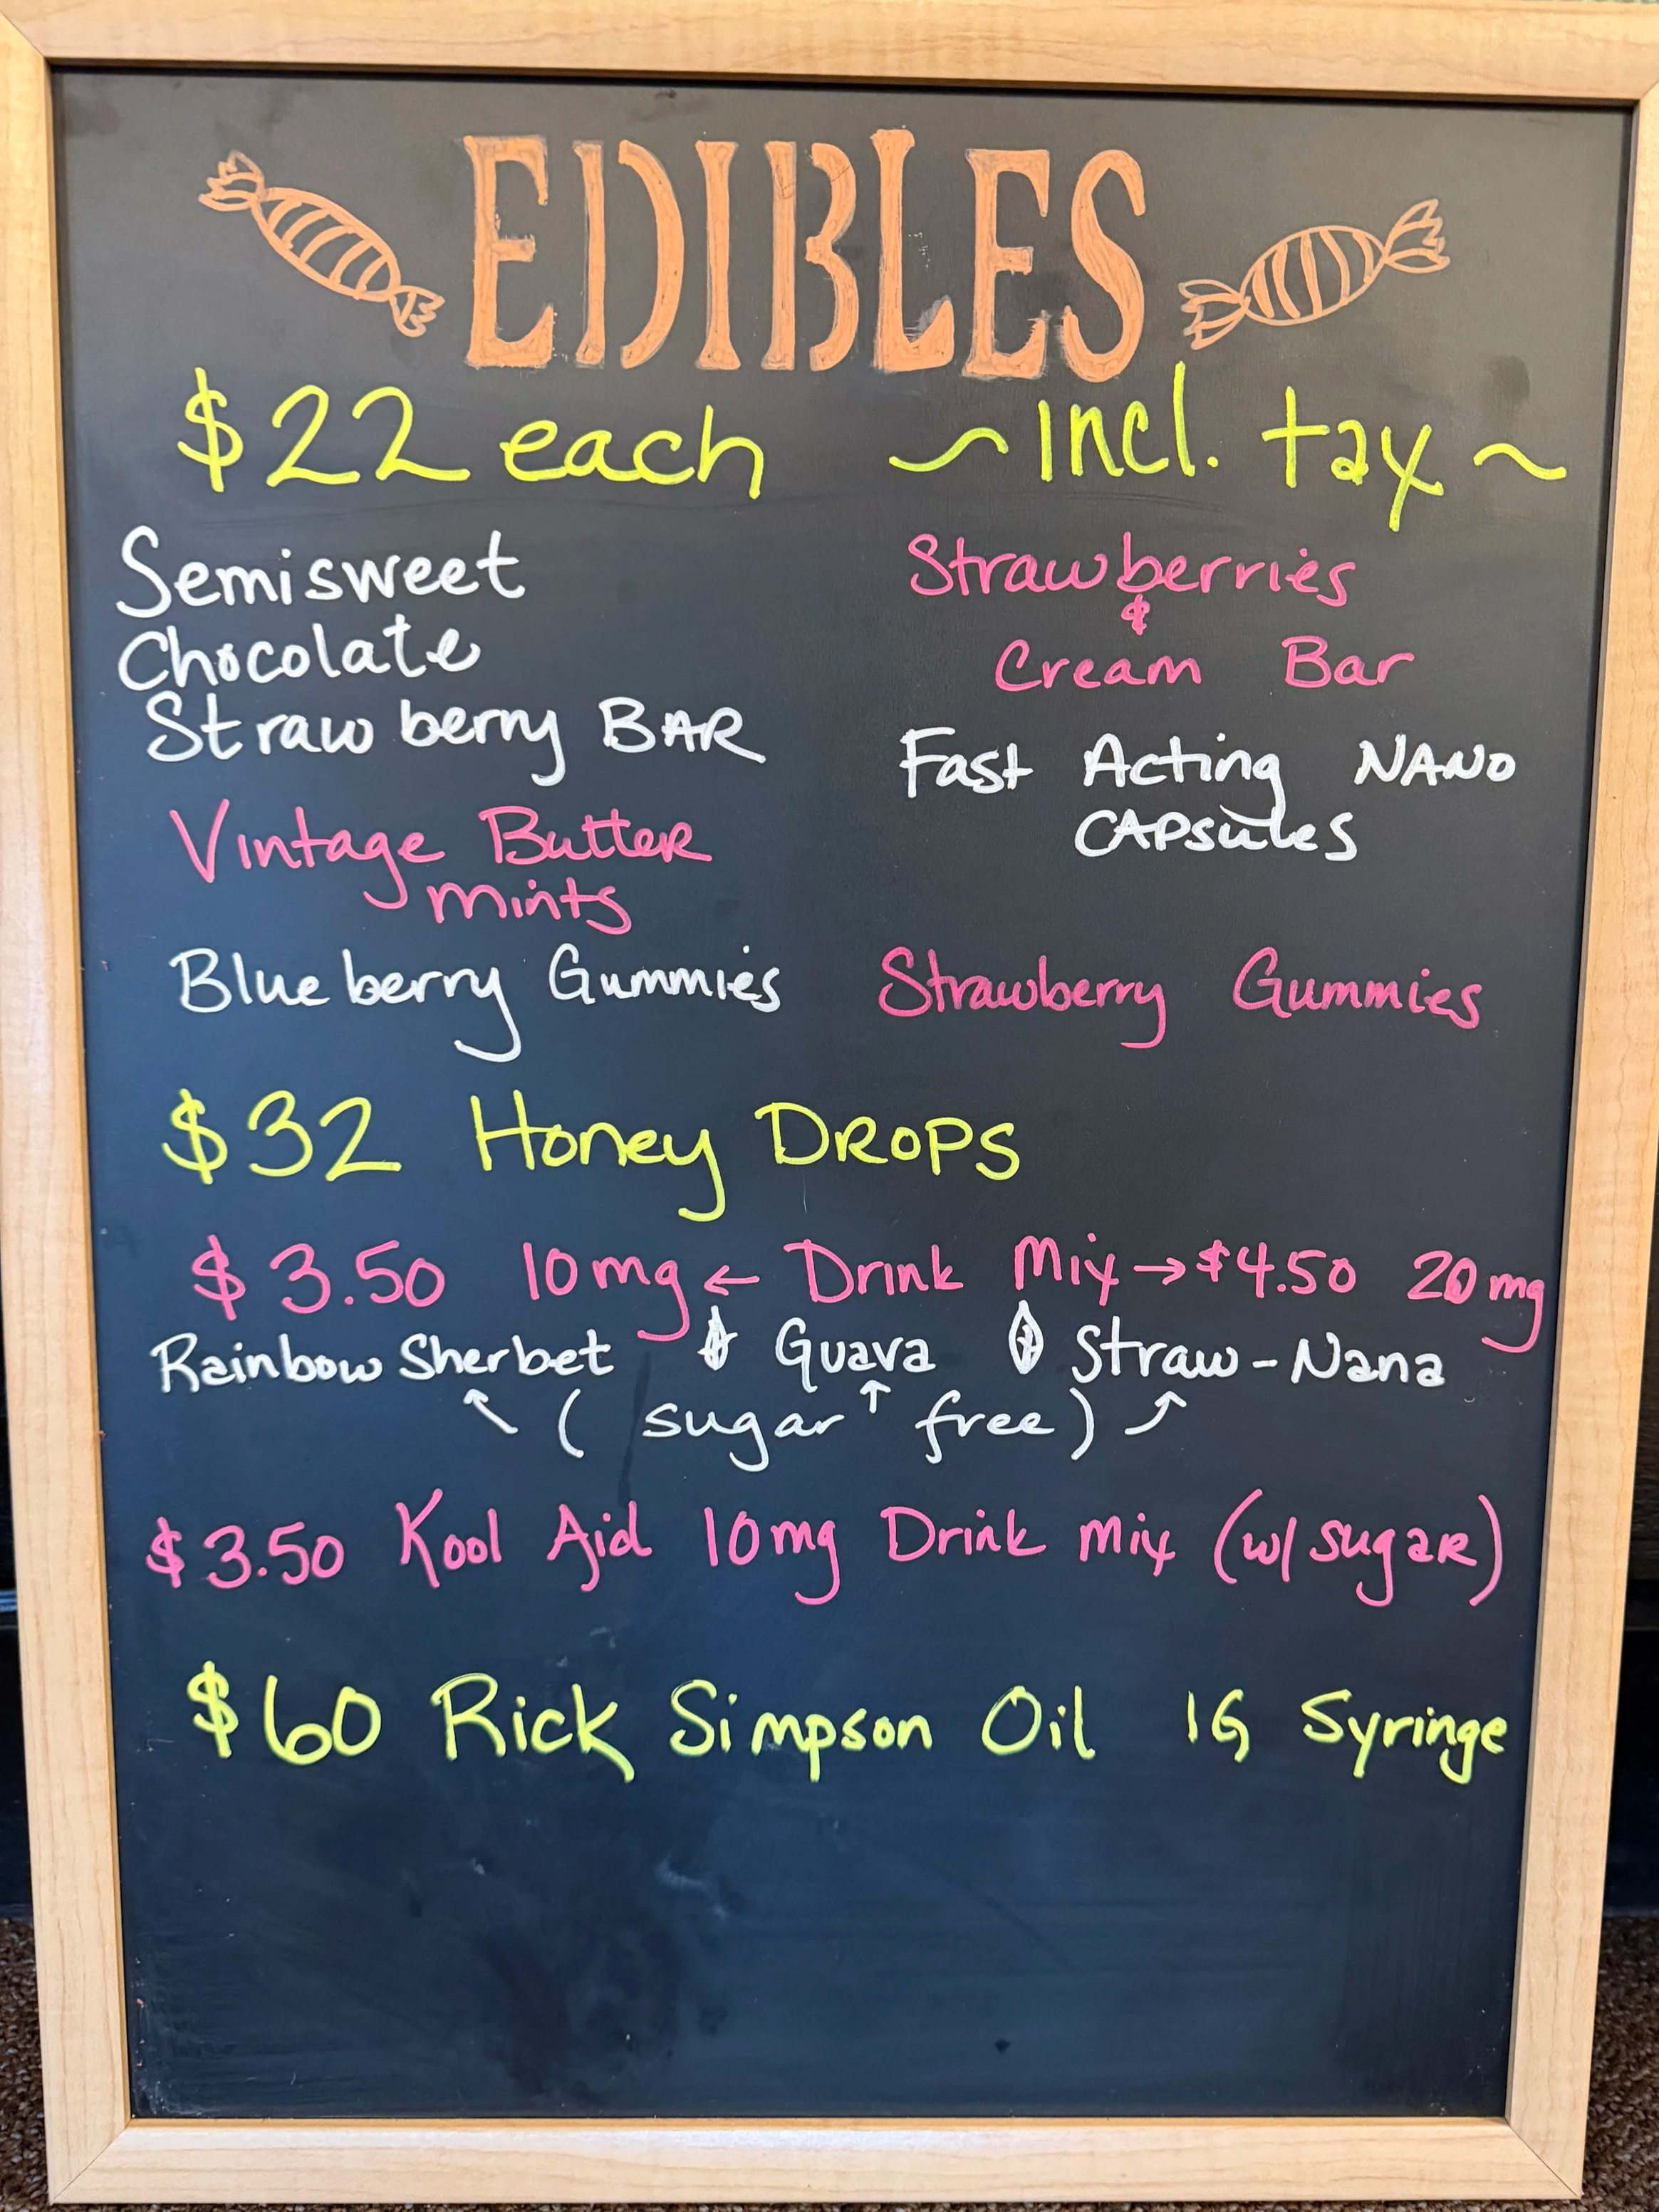 EDIBLES
$22 each ~ Incl. tax ~
Semisweet
Chocolate
Strawberry BAR
Vintage Butter
Mints
Blueberry Gummies
Strawberries
&
Cream Bar
Fast Acting NANO
CAPsules
Strawberry Gummies
$32 Honey DROPS
$3.50 10mg ← Drink Mix → $4.50 20mg
Rainbow Sherbet Guava Straw-Nana
(sugar free)
$3.50 Kool Aid 10mg Drink Mix (w/ sugar)
$60 Rick Simpson Oil 1G Syringe